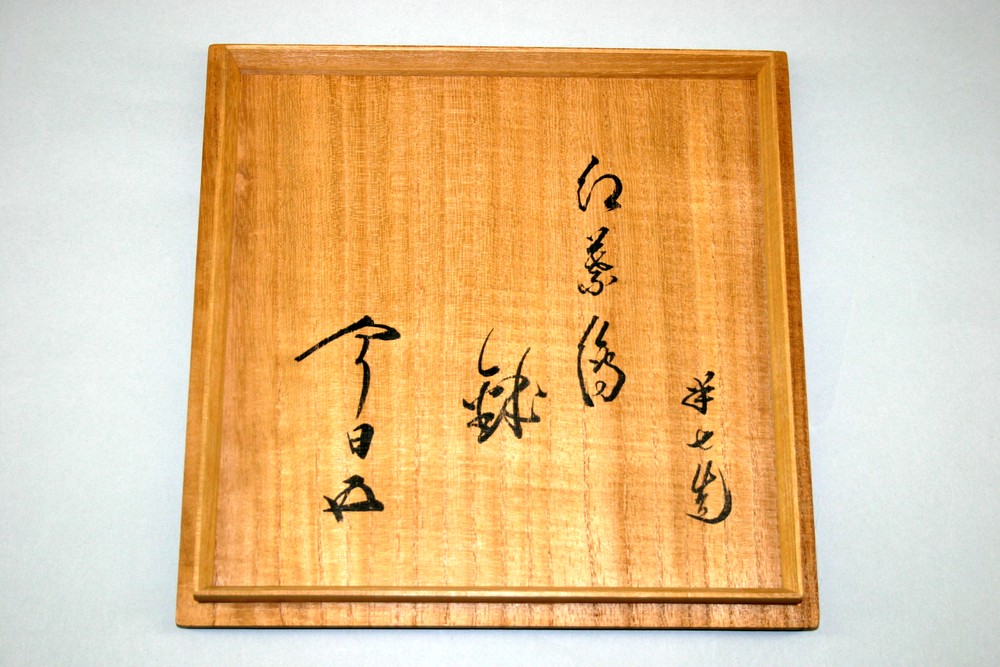 半七造
紅葉
鉢
今日